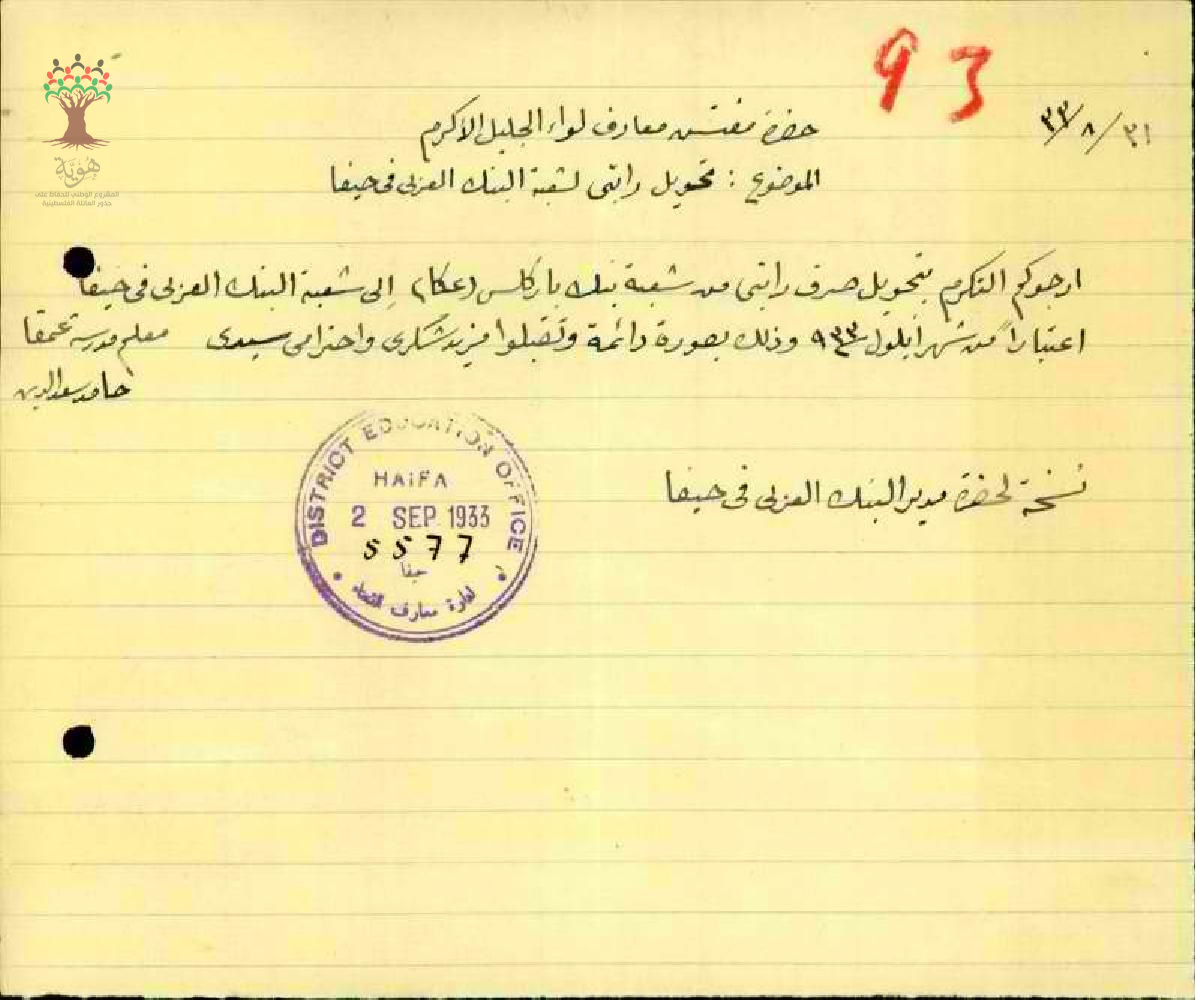 93
٣١/٨/٣٣
حضرة مفتش معارف لواء الجليل الاكرم
الموضوع : تحويل راتبي لشعبة البنك العربي في حيفا
ارجوكم التكرم بتحويل صرف راتبي من شعبة بنك باركلس (عكا) إلى شعبة البنك العربي في حيفا
اعتباراً من شهر أيلول ٩٣٣ وذلك بصورة دائمة وتقبلوا مزيد شكري واحترامي سيدي
معلم مدرسة عمقا
حامد سعد الدين
نسخة لحضرة مدير البنك العربي في حيفا
DISTRICT EDUCATION OFFICE
HAIFA
2 SEP 1933
5577
حيفا
ادارة معارف القضاء
هُوِيَّة
المشروع الوطني للحفاظ على
جذور العائلة الفلسطينية